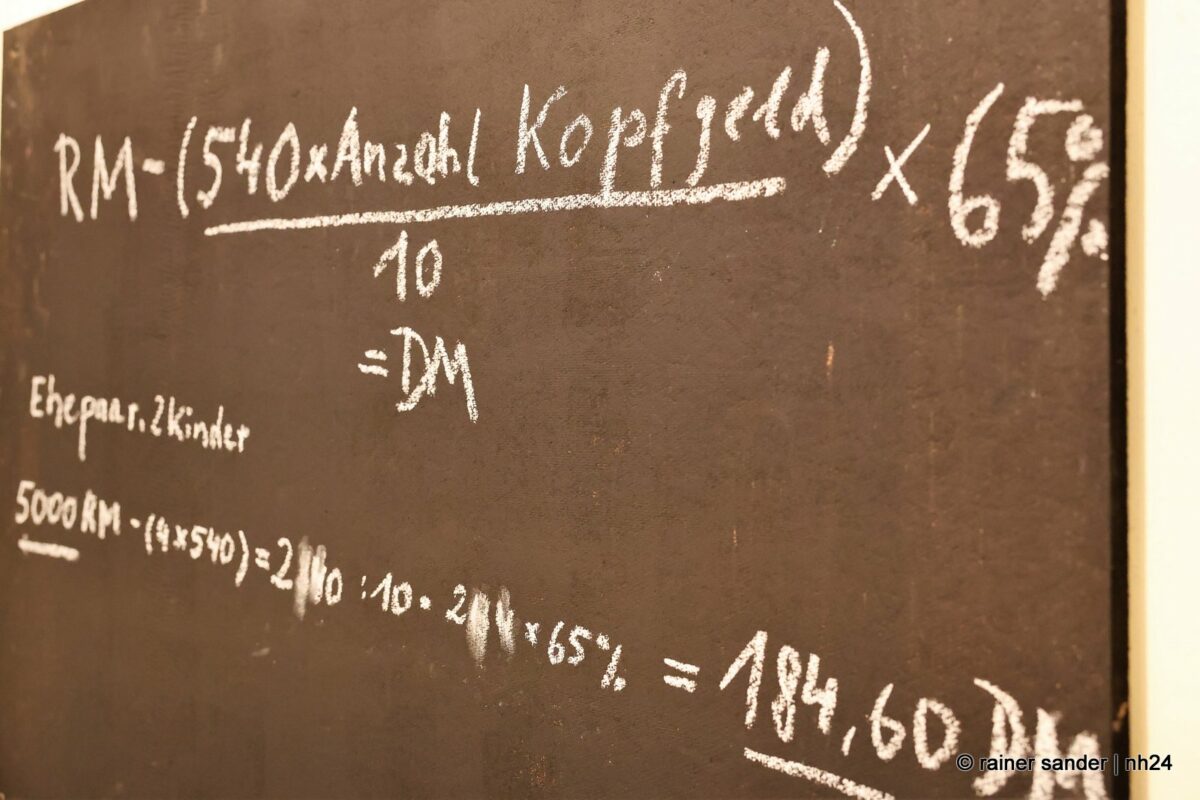 RM - (540 x Anzahl Kopfgeld) x 65%
10
= DM
Ehepaar, 2 Kinder
5000 RM - (4 x 540) = : 10 = x 65% = 184,60 DM
© rainer sander | nh24